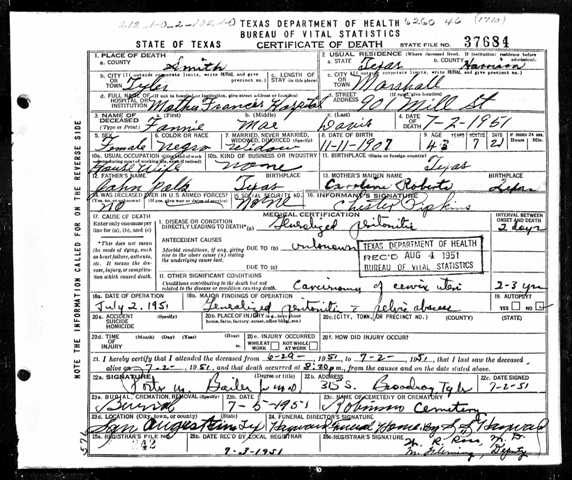 TEXAS DEPARTMENT OF HEALTH
BUREAU OF VITAL STATISTICS
STATE OF TEXAS CERTIFICATE OF DEATH STATE FILE NO. 37684
1. PLACE OF DEATH 2. USUAL RESIDENCE
a. COUNTY Smith a. STATE Texas b. COUNTY Harrison
b. CITY OR TOWN Tyler c. LENGTH OF STAY c. CITY OR TOWN Marshall
d. FULL NAME OF HOSPITAL OR INSTITUTION Mother Frances Hospital d. STREET ADDRESS 901 Mill St
3. NAME OF DECEASED (Type or Print) a. (First) Fannie b. (Middle) Mae c. (Last) Davis 4. DATE OF DEATH 7-2-1951
5. SEX Female 6. COLOR OR RACE Negro 7. MARRIED, NEVER MARRIED, WIDOWED, DIVORCED (Specify) Widow 8. DATE OF BIRTH 11-11-1907 9. AGE 43 7 21
10a. USUAL OCCUPATION House Wife 10b. KIND OF BUSINESS OR INDUSTRY None 11. BIRTHPLACE (State or foreign country) Texas
12. FATHER'S NAME BIRTHPLACE Texas 13. MOTHER'S MAIDEN NAME Caroline Roberts BIRTHPLACE Texas
14. WAS DECEASED EVER IN U.S. ARMED FORCES? NO 15. SOCIAL SECURITY NO. None 16. INFORMANT'S SIGNATURE Chester
17. CAUSE OF DEATH MEDICAL CERTIFICATION INTERVAL BETWEEN ONSET AND DEATH
I. DISEASE OR CONDITION DIRECTLY LEADING TO DEATH (a) peritonitis 2 days
ANTECEDENT CAUSES
DUE TO (b) unknown
DUE TO (c)
TEXAS DEPARTMENT OF HEALTH
REC'D AUG 4 1951
BUREAU OF VITAL STATISTICS
* This does not mean the mode of dying, such as heart failure, asthenia, etc. It means the disease, injury, or complication which caused death.
II. OTHER SIGNIFICANT CONDITIONS
Conditions contributing to the death but not related to the disease or condition causing death. Carcinoma of cervix uteri 2-3 yrs
18a. DATE OF OPERATION July 2, 1951 18b. MAJOR FINDINGS OF OPERATION Generalized peritonitis & pelvic abscess 19. AUTOPSY YES NO
20a. ACCIDENT SUICIDE HOMICIDE (Specify) 20b. PLACE OF INJURY 20c. (CITY, TOWN, OR PRECINCT NO.) (COUNTY) (STATE)
20d. TIME OF INJURY 20e. INJURY OCCURRED WHILE AT WORK NOT WHILE AT WORK 20f. HOW DID INJURY OCCUR?
21. I hereby certify that I attended the deceased from 6-29-1951, to 7-2-1951, that I last saw the deceased
alive on 7-2-1951, and that death occurred at 8:30 p.m., from the causes and on the date stated above.
22a. SIGNATURE (Degree or title) 22b. ADDRESS 315 S. Broadway Tyler 22c. DATE SIGNED 7-2-51
23a. BURIAL, CREMATION, REMOVAL (Specify) Burial 23b. DATE 7-5-1951 23c. NAME OF CEMETERY OR CREMATORY Robinson Cemetery
23d. LOCATION (City, town, or county) (State) San Augustine Tex 24. FUNERAL DIRECTOR'S SIGNATURE Funeral Home
25a. REGISTRAR'S FILE NO. 342 25b. DATE REC'D BY LOCAL REGISTRAR 7-3-1951 25c. REGISTRAR'S SIGNATURE
Deputy
NOTE THE INFORMATION CALLED FOR ON THE REVERSE SIDE